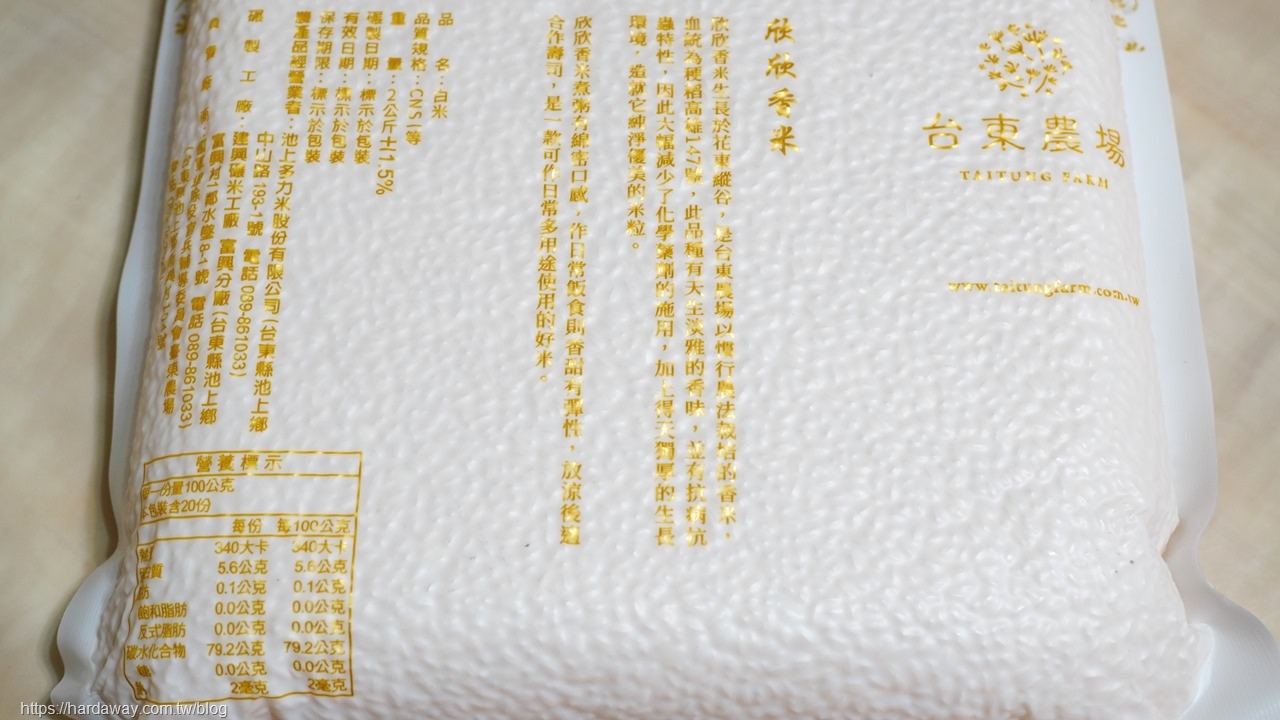 台東農場
TAITUNG FARM
www.taitungfarm.com.tw
欣欣香米
欣欣香米生長於花東縱谷，是台東農場以慣行農法栽培的香米，
血統為種稻高雄147號，此品種有天生淡雅的香味，並有抗病抗
蟲特性，因此大幅減少了化學藥劑的施用，加上得天獨厚的生長
環境，造就它純淨優美的米粒。
欣欣香米煮粥有綿密口感，作日常飯食則香甜有彈性，放涼後適
合作壽司，是一款可作日常多用途使用的好米。
品名：白米
品質規格：CNS1等
重量：2公斤±1.5%
碾製日期：標示於包裝
有效日期：標示於包裝
保存期限：標示於包裝
農產品經營業者：池上多力米股份有限公司(台東縣池上鄉
中山路193-1號 電話089-861033)
碾製工廠：建興碾米工廠 富興分廠(台東縣池上鄉
富興村二鄰水墜8-4號 電話089-861033)
營養標示
每一份量100公克
本包裝含20份
每份 每100公克
340大卡 340大卡
5.6公克 5.6公克
0.1公克 0.1公克
飽和脂肪 0.0公克 0.0公克
反式脂肪 0.0公克 0.0公克
碳水化合物 79.2公克 79.2公克
0.0公克 0.0公克
2毫克 2毫克
https://hardaway.com.tw/blog